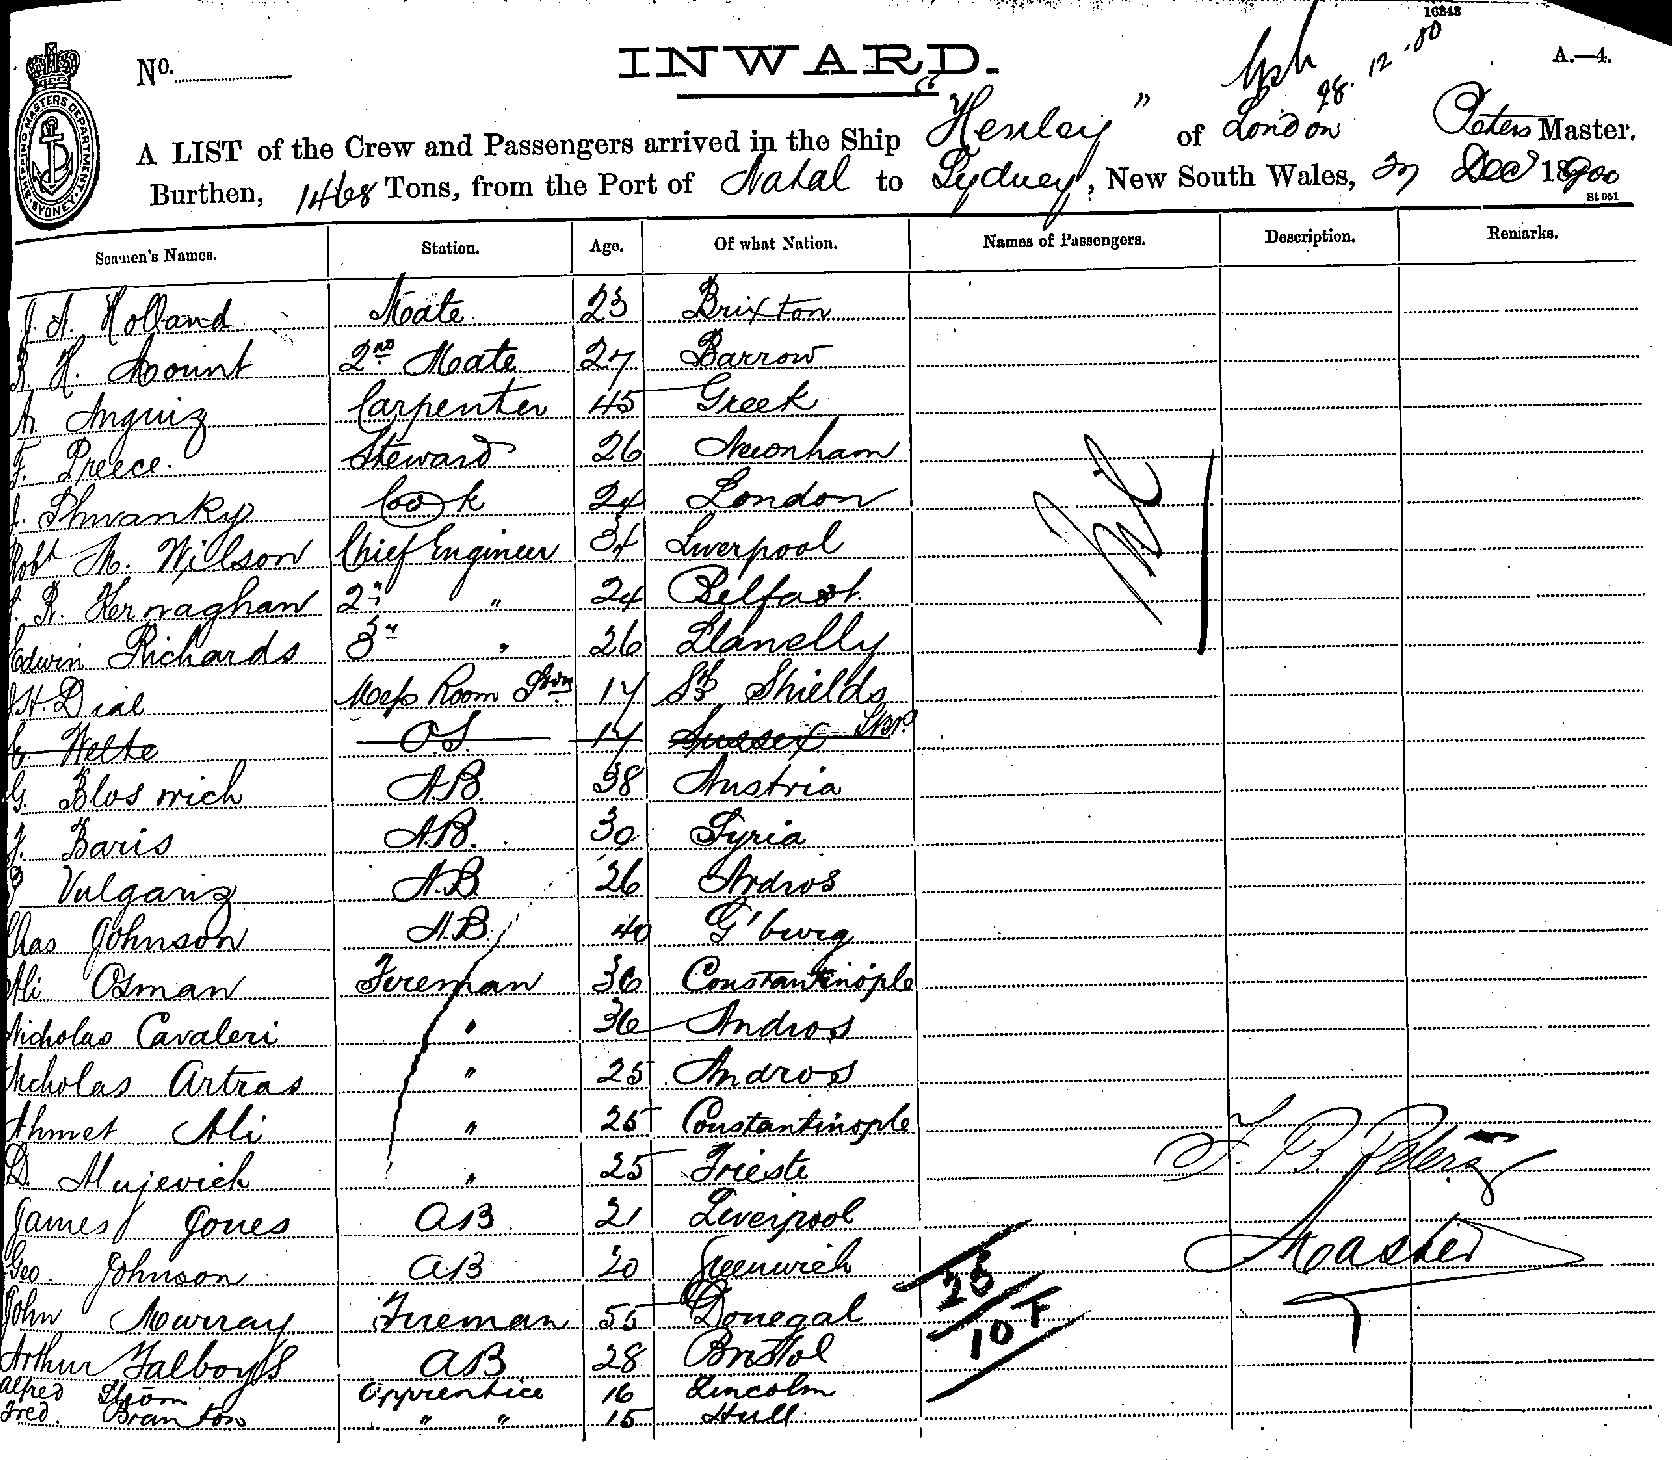 16348
No.
INWARD.
28.12.00
A.—4.
SHIPPING MASTERS DEPARTMENT
SYDNEY
A LIST of the Crew and Passengers arrived in the Ship "Henley" of London Peters Master.
Burthen, 1468 Tons, from the Port of Natal to Sydney, New South Wales, Dec 1900
St 051
Seamen's Names. Station. Age. Of what Nation. Names of Passengers. Description. Remarks.
J. A. Holland Mate 23 Brixton
R. H. Mount 2nd Mate 27 Barrow
A. Anguiz Carpenter 45 Greek
F. Preece. Steward 26 Newnham
J. Shwanky Cook 24 London
Robt M. Wilson Chief Engineer 34 Liverpool
R. Kernaghan 2" " 24 Belfast.
Edwin Richards 3" " 26 Llanelly
H. Dial Mess Room 17 Sth Shields
Welte OS 17 Sussex
G. Blosovich A.B. 38 Austria
J. Baris A.B. 30 Syria
Vulgariz A.B. 26 Andros
Chas Johnson A.B. 40 G'burg
Ali Osman Fireman 36 Constantinople
Nicholas Cavaleri " 36 Andros
Nicholas Artras " 25 Andros
Ahmet Ali " 25 Constantinople
D. Mujevich " 25 Trieste
James Jones AB 21 Liverpool
Geo. Johnson AB 20 Greenwich
John Murray Fireman 55 Donegal
Arthur Talboys AB 28 Bristol
Alfred Strom Apprentice 16 Lincoln
Fred. Branton " " 15 Hull
Nil
F. B. Peters
Master
28
10 F